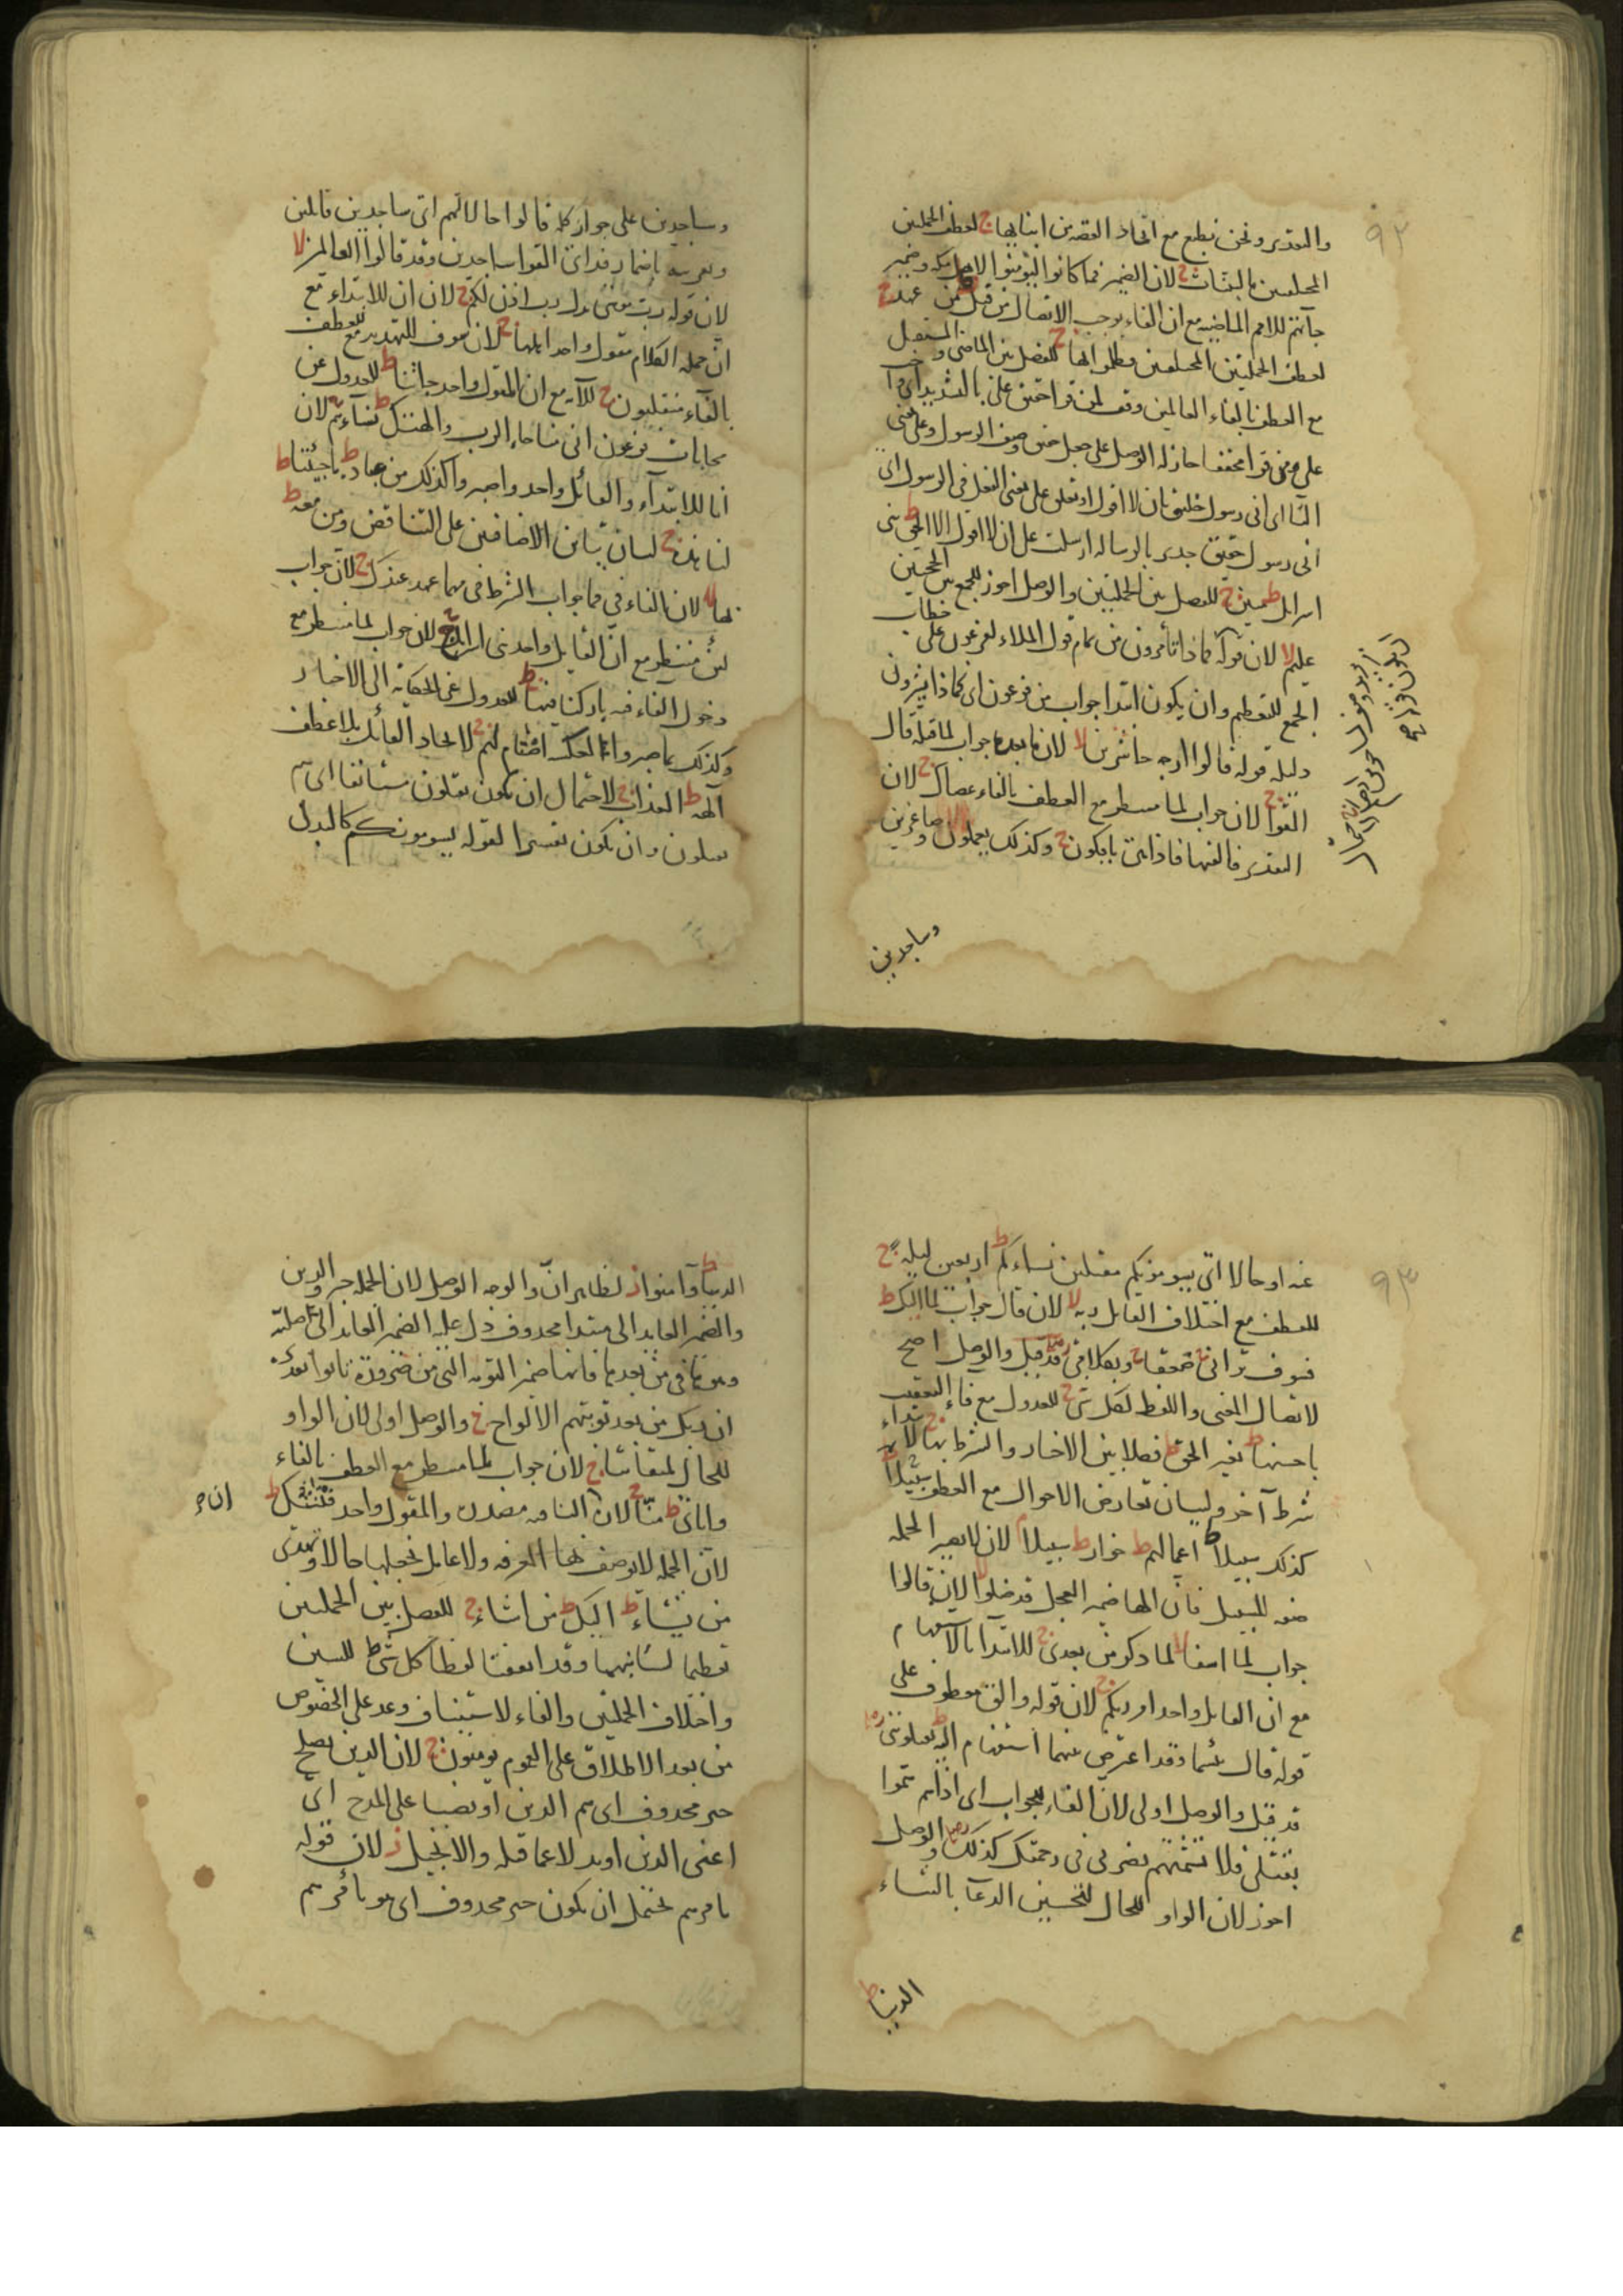 ٩٢
والتقدير ونحن نطبع مع اتحاد القصة من ابنائها ج لعطف الجملتين
المختلفتين بالبينات ج لان الضمير فما كانوا ليؤمنوا لاهل مكة وضمير
جاءتهم للامم الماضية مع ان الفاء يوجب الاتصال من قبل ط من عهد ج
لعطف الجملتين المختلفتين فظلموا بها ج للفصل بين الماضي والمستقبل
مع العطف بالفاء العالمين وقف لمن قرا حقيق علي بالتشديد اي واجب
علي ومن قرا مخففا جاز له الوصل على جعل حقيق وصف الرسول وعلى بمعنى
الباء اي اني رسول خليق بان لا اقول او تعلق على بمعنى الفعل في الرسول اي
اني رسول حقيق جدير بالرسالة ارسلت على ان لا اقول الا الحق ط بني
اسرائيل ط مبين ج للفصل بين الجملتين والوصل اجوز للجمع بين الحجتين
عليم لا لان قوله فماذا تأمرون من تمام قول الملاء لفرعون على خطاب
الجمع للتعظيم وان يكون ابتدا جواب من فرعون اي فماذا تشيرون
دليله قوله قالوا ارجه حاشرين لا لان ما بعده جواب لما قبله قال
القوا ج لان جواب لما منتظر مع العطف بالفاء عصاك ج لان
التقدير فالقيها فاذا هي يأفكون ج وكذلك يعملون صاغرين
وساجدين
وساجدين على جواز كله قالوا حالا لهم اي ساجدين قائلين
لان قوله رب موسى بدل رب اذن لكم ج لان ان للابتداء مع
ان جملة الكلام مقول واحد اهلها ج لان سوف للتهديد مع العطف
بالفاء منقلبون ج للآية مع ان المقول واحد جاءتنا ط للعدول عن
محابات فرعون الى مناجاة الرب وآلهتك ط نساءهم ج لان
انا للابتداء والقائل واحد واصبروا كذلك من عباده ط ما جئتنا ط
لنا هذه ج لبيان تباين الاضافتين على التناقض ومن معه ط
بها لا لان الفاء في فما جواب الشرط في مهما عهد عندك ج لان جواب
لئن منتظر مع ان القايل واحد بني اسرائيل ج لان جواب لما منتظر مع
دخول الفاء فيه باركنا فيها ط للعدول عن الحكاية الى الاخبار
وكذلك بما صبروا ط اصنام لهم ج لاتحاد القائل بلا عطف
آلهة ط العذاب ج لاحتمال ان يكون يقتلون مستانفا اي هم
يقتلون وان يكون تفسيرا لقوله يسومونكم كالبدل
٩٣
عنه او حالا اي يسومونكم مقتلين نساءكم ط اربعين ليلة ج
للعطف مع اختلاف القايل ربه لا لان قال جواب لما اليك ط
فسوف تراني ج صعقا ج وبكلامي قد قيل والوصل اصح
لاتصال المعنى واللفظ لكل شئ ج للعدول مع فاء التعقيب
باحسنها ط بغير الحق ط فصلا بين الاخبار والشرط بها ج لابتداء
شرط آخر ولبيان تعارض الاحوال مع العطف سبيلا ج
كذلك سبيلا ط اعمالهم ط خوار ط سبيلا م لان لا يصير الجملة
صفة للسبيل فان الهاء ضمير العجل قد ضلوا لا لان قالوا
جواب لما اسفا لا لما ذكر من بعدي ج للابتدا بالاستفهام
مع ان القايل واحد امر ربكم ج لان قوله والقى معطوف على
قوله قال بئسما وقد اعترض بينهما استفهام اليه ط يقتلونني
قد قيل والوصل اولى لان الفاء للجواب اي اذا هم هموا
بقتلي فلا تشمتهم بضربي في رحمتك كذلك والوصل
اجوز لان الواو للحال لتحسين الدعآ بالثناء
الدنيا ط
الدنيا ط وآمنوا ز لظاهر ان والوجه الوصل لان الجملة خبر والذين
والضمير العايد الى مبتدا محذوف دل عليه الضمير العايد الى صلته
وهو ها في من بعدها فانها ضمير التوبة التي من ضرورة تابوا تقديره
ان ربك من بعد توبتهم الالواح ج والوصل اولى لان الواو
للحال لميقاتنا ج لان جواب لما منتظر مع العطف بالفاء
واياي ط منا ج لان النافية مصدرة والمقول واحد فتنتك ط
لان الجملة لا توصف بها المعرفة ولا عامل يجعلها حالا وتهدي
من تشاء ط اليك ط من اشاء ج للفصل بين الجملتين
تعظيما لشانهما وقد اتفقتا لفظا كل شئ ط للسين
واختلاف الجملتين والفاء لاستيناف وعد على الخصوص
من بعد الاطلاق على العموم يؤمنون ج لان الذين يصلح
خبر محذوف اي هم الذين او نصبا على المدح اي
اعني الذين او بدلا عما قبله والانجيل ز لان قوله
يامرهم يحتمل ان يكون خبر محذوف اي هو يأمرهم